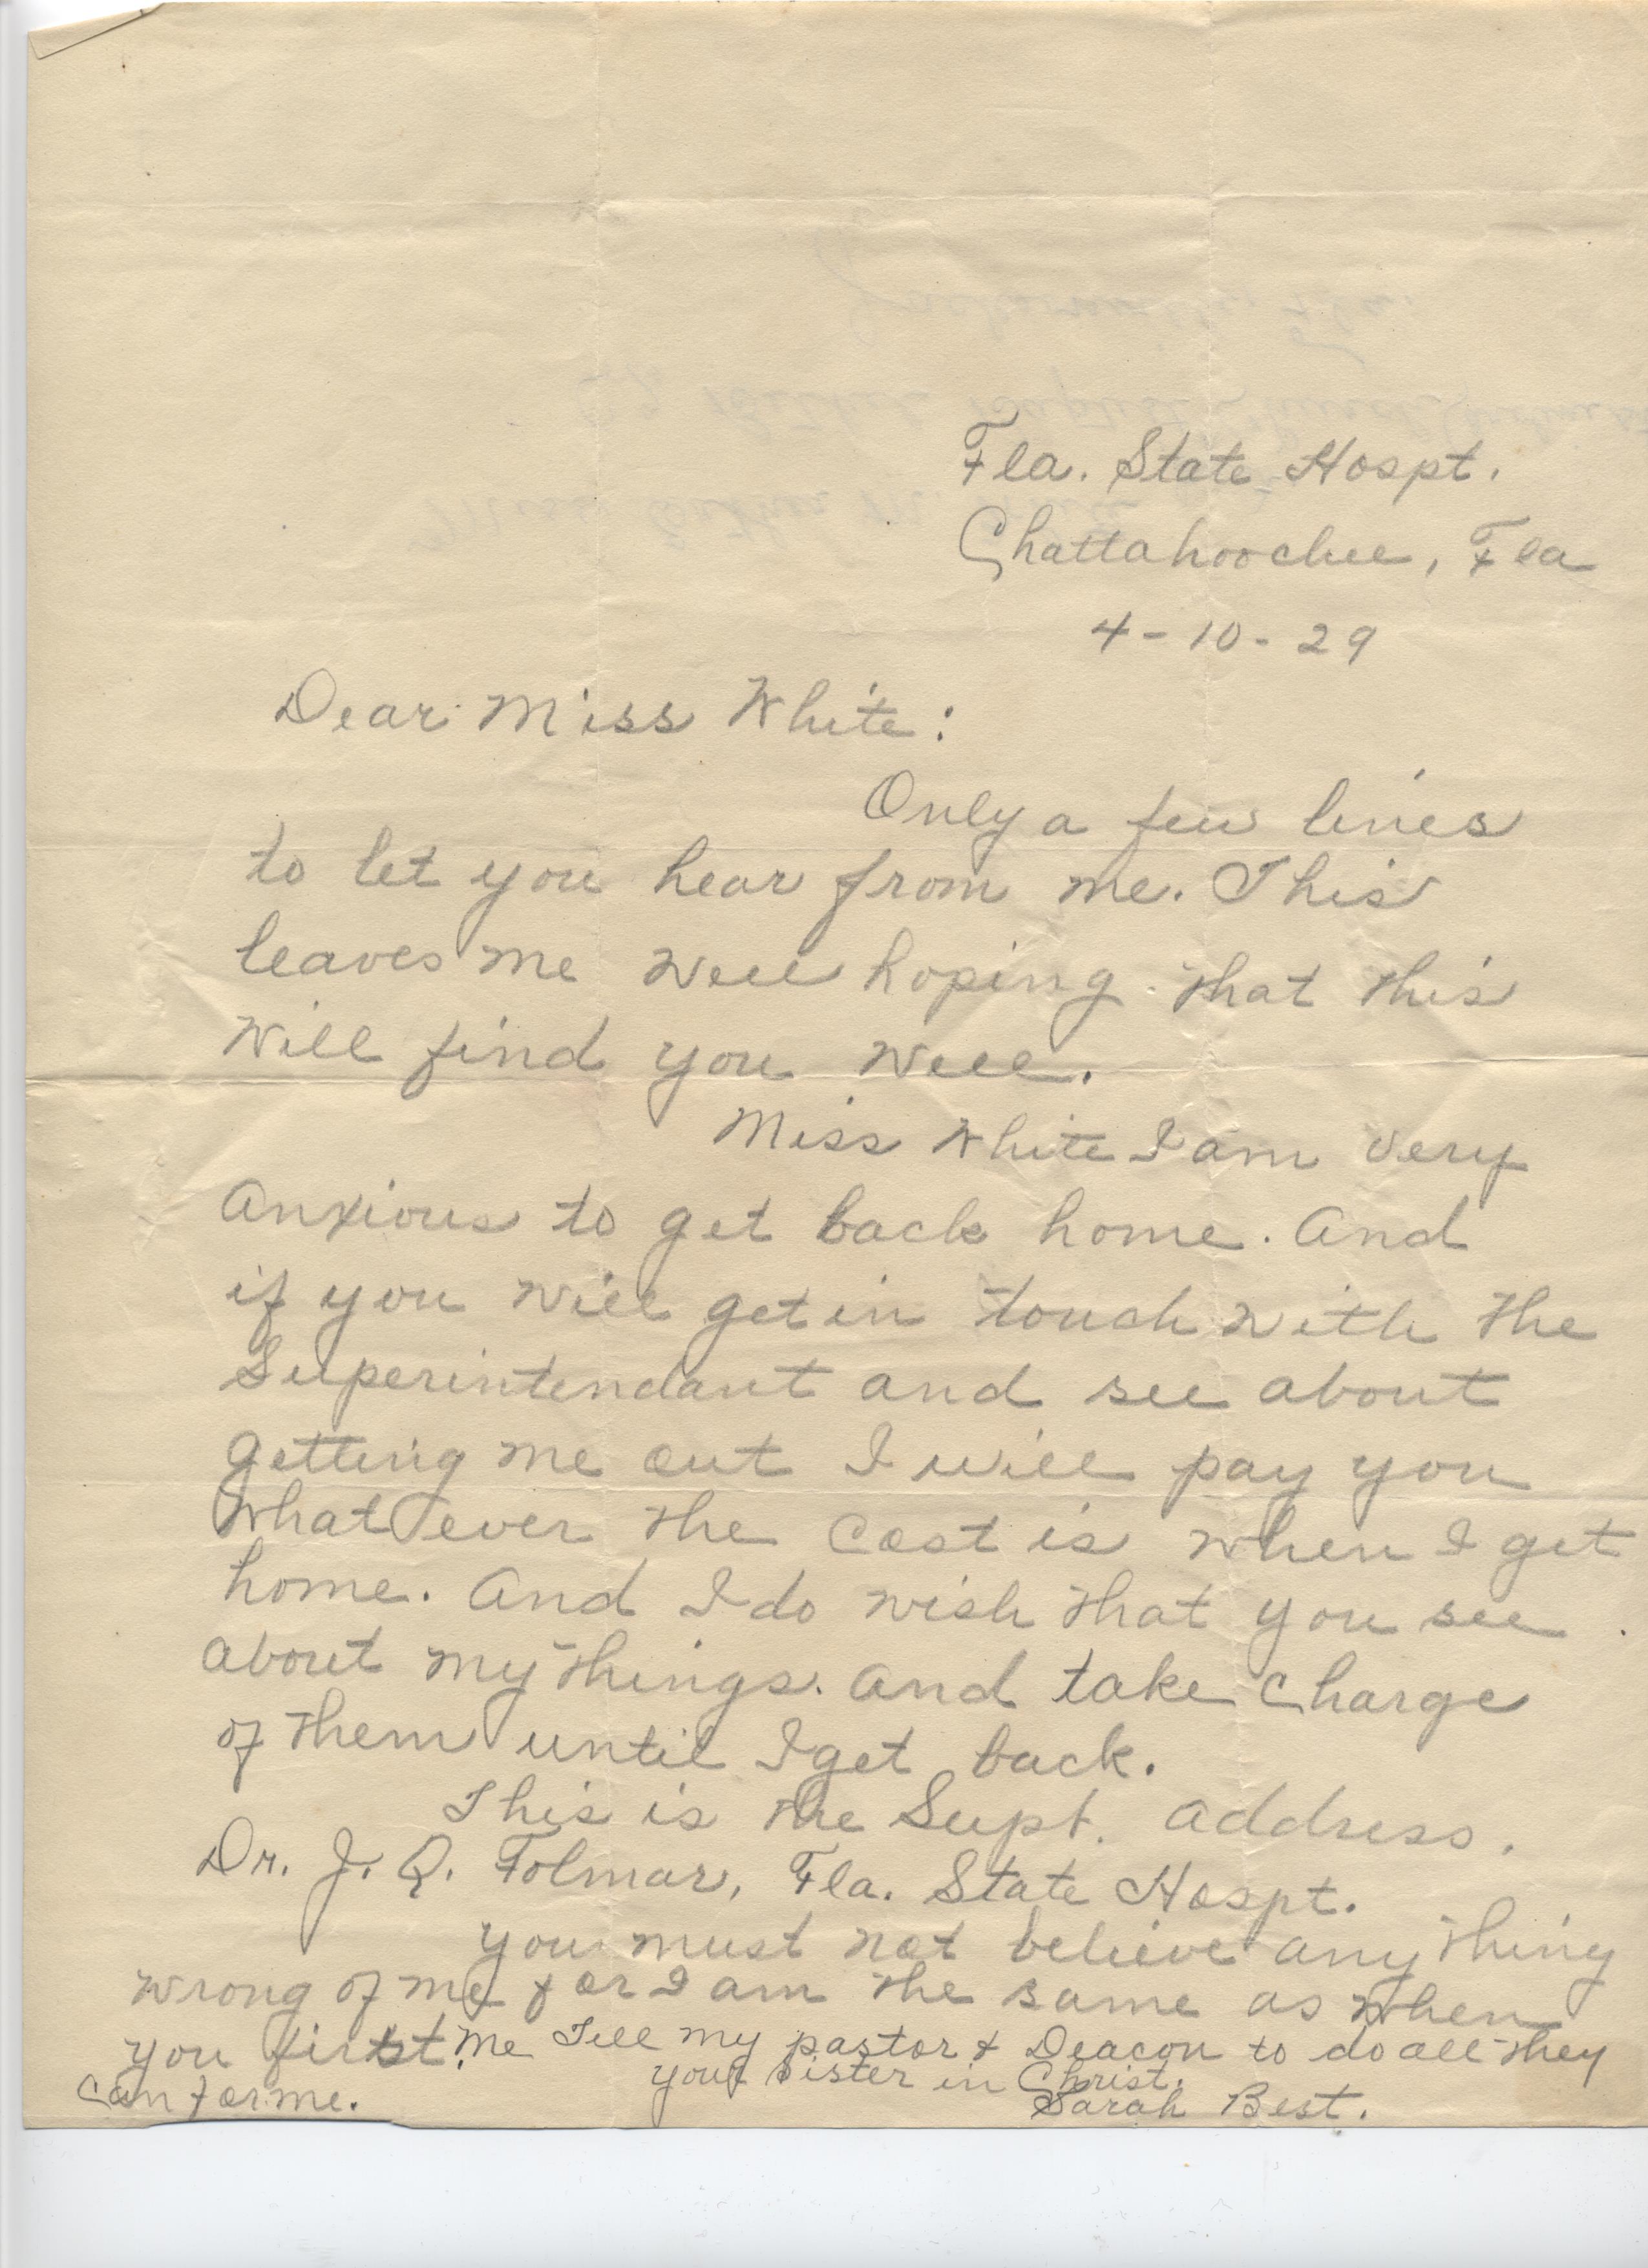 Fla. State Hospt.
Chattahoochee, Fla
4-10-29
Dear Miss White:
Only a few lines
to let you hear from me. This
leaves me well hoping that this
will find you well.
Miss White I am very
anxious to get back home. And
if you will get in touch with the
Superintendant and see about
getting me out I will pay you
what ever the cost is when I get
home. And I do wish that you see
about my things. And take charge
of them until I get back.
This is the Supt. address.
Dr. J. Q. Folmar, Fla. State Hospt.
You must not believe any thing
wrong of me for I am the same as when
you first me Tell my pastor & Deacon to do all they
can for me.
your Sister in Christ.
Sarah Best.